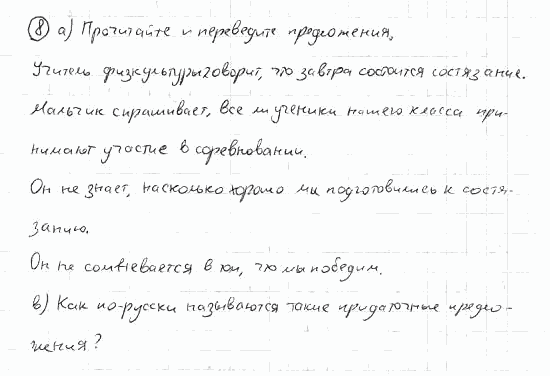 8 а) Прочитайте и переведите предложения,
Учитель физкультуры говорит, что завтра состоится состязание.
Мальчик спрашивает, все ли ученики нашего класса при-
нимают участие в соревновании.
Он не знает, насколько хорошо мы подготовились к состя-
занию.
Он не сомневается в том, что мы победим.
в) Как по-русски называются такие придаточные предло-
жения?